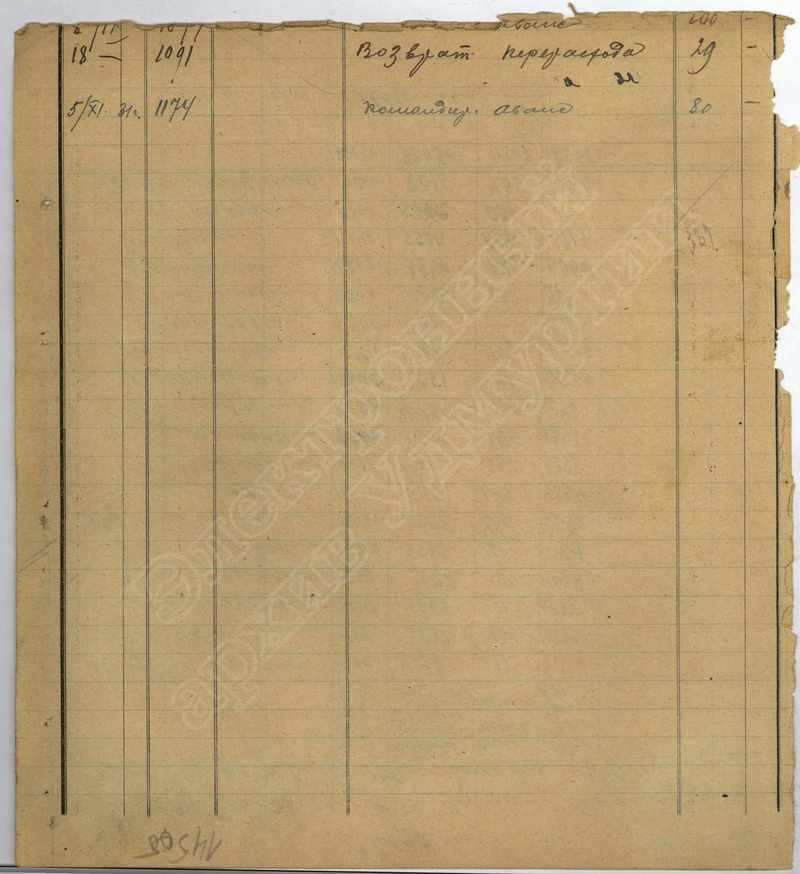 аванс 100 —
18 — 1091 Возврат перерасхода 29 —
5/XI 31г. 1174 Командир. аванс 80 —
Электронный
архив Удмуртии
14508